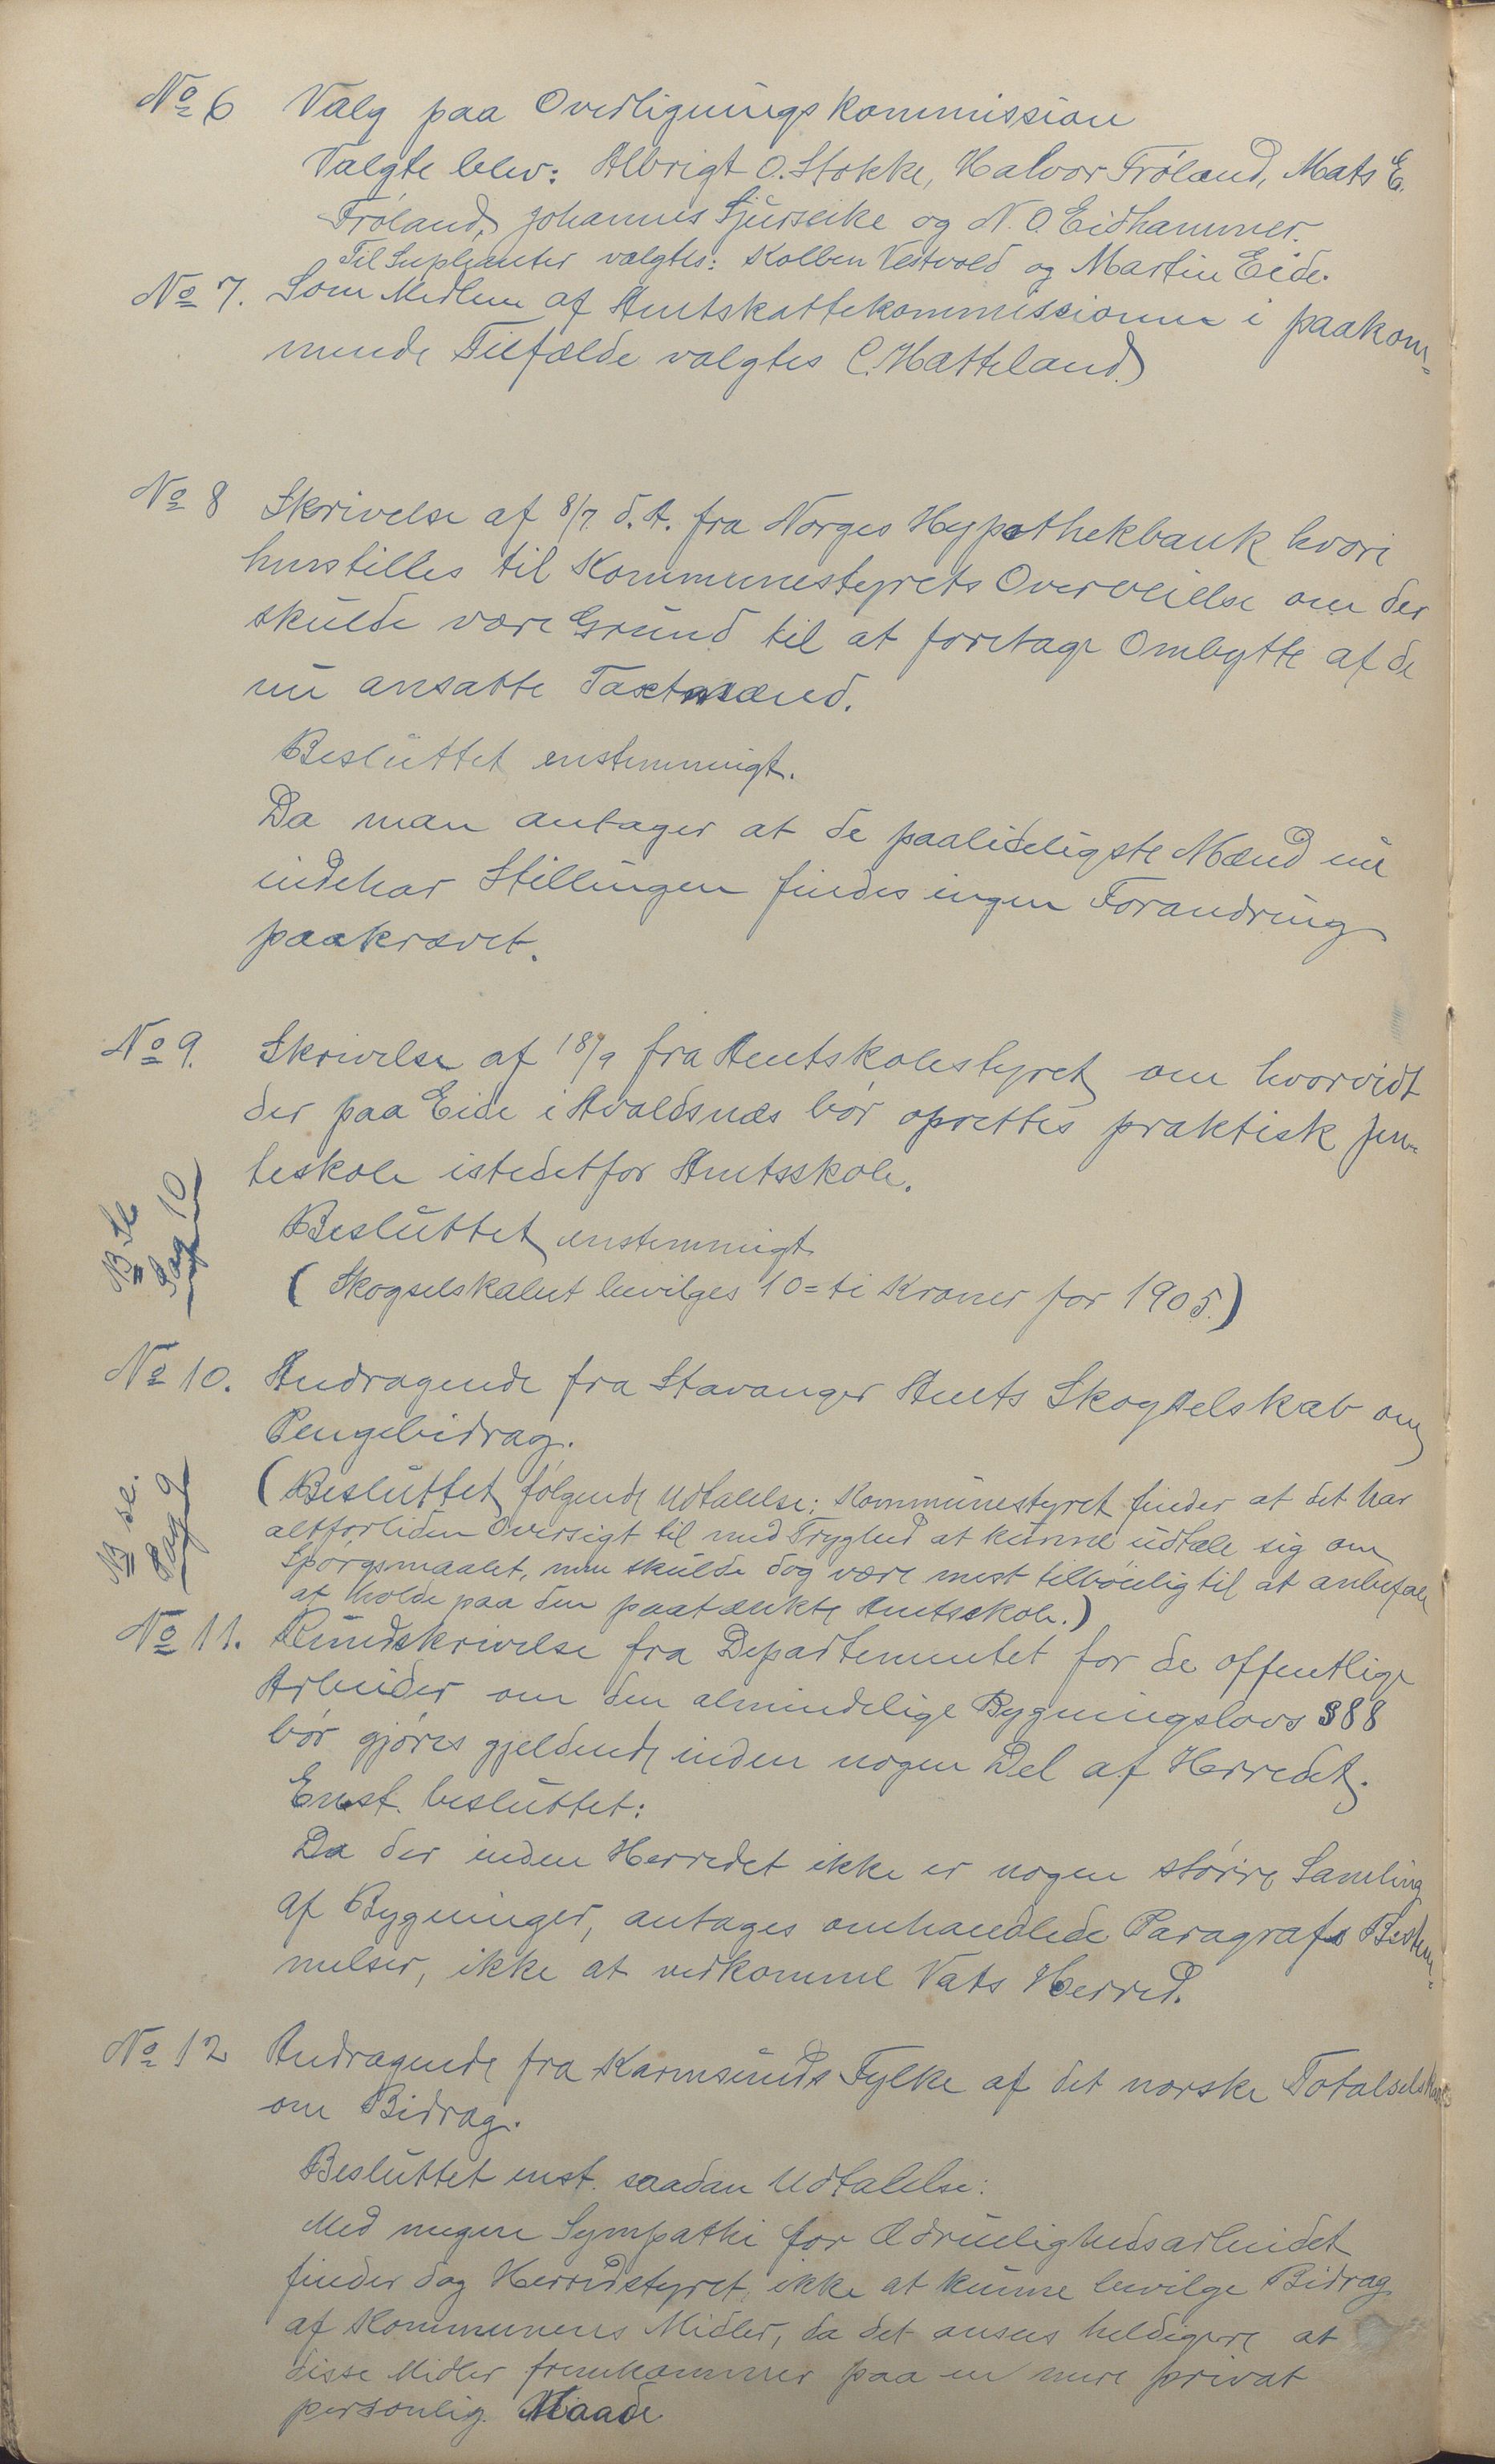 No 6 Valg paa Overligningskommission
Valgte blev: Albrigt O. Stokke, Halvor Frøland, Mats E.
Frøland, Johannes Sjurseike og N. O. Eidhammer.
Til Suplianter valgtes: Kolben Vestvold og Martin Eide.
No 7. Som Medlem af Amtskattekommissionen i paakom-
mende Tilfælde valgtes C. Hatteland.
No 8 Skrivelse af 8/7 d. A. fra Norges Hypothekbank hvori
henstilles til Kommunestyrets Overveielse om der
skulde være Grund til at foretage Ombytte af de
nu ansatte Taxtmænd.
Besluttet enstemmigt.
Da man antager at de paalideligste Mænd nu
indehar Stillingen findes ingen Forandring
paakrævet.
No 9. Skrivelse af 18/9 fra Amtskolestyret om hvorvidt
der paa Eide i Avaldsnæs bør oprettes praktisk Jen-
teskole istedetfor Amtsskole.
B. sl.
Sag 10
Besluttet enstemmigt
(Skogselskabet bevilges 10 = ti Kroner for 1905.)
No 10. Andragende fra Stavanger Amts Skogselskab om
Pengebidrag.
B. sl.
Sag 9
(Besluttet følgende Udtalelse: Kommunestyret finder at det har
altforliden Oversigt til med Tryghed at kunne udtale sig om
Spørgsmaalet, men skulde dog være mest tilbøielig til at anbefale
at holde paa den paatænkte Amtsskole.)
No 11. Rundskrivelse fra Departementet for de offentlige
Arbeider om den almindelige Bygningslovs §88
bør gjøres gjeldende inden nogen Del af Herredet.
Enst. besluttet:
Da der inden Herredet ikke er nogen større Samling
af Bygninger, antages omhandlede Paragrafs Bestem-
melser, ikke at vedkomme Vats Herred.
No 12 Andragende fra Karmsunds Fylke af det norske Totalselskab
om Bidrag.
Besluttet enst. saadan Udtalelse:
Med megen Sympathi for Ædruelighedsarbeidet
finder dog Herredstyret, ikke at kunne bevilge Bidrag
af Kommunens Midler, da det ansees heldigere at
disse Midler fremkommer paa en mere privat
personlig Maade